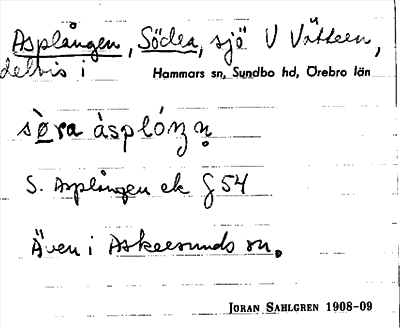 Asplången, Södra, sjö V Vättern,
delvis i Hammars sn, Sundbo hd, Örebro län
sø̀ra àsplóŋ
S. Asplången ek § 54
Även i Askersunds sn.
JÖRAN SAHLGREN 1908-09